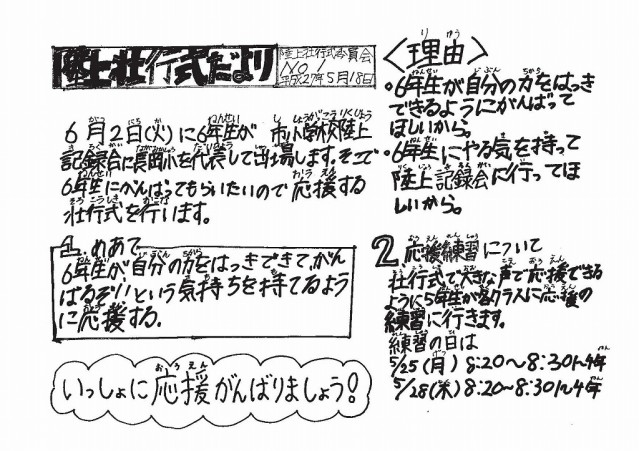 陸上壮行式だより
陸上壮行式委員会
NO 1
平成27年5月18日
6月2日(火)に6年生が 市小学校陸上
記録会に長岡小を代表して出場します。そこで
6年生にがんばってもらいたいので応援する
壮行式を行います。
1. めあて
6年生が自分の力をはっきできて、がん
ばるぞ!!という気持ちを持てるよう
に応援する。
いっしょに応援がんばりましょう!
〈理由〉
・6年生が自分の力をはっき
できるようにがんばって
ほしいから。
・6年生にやる気を持って
陸上記録会に行ってほ
しいから。
2 応援練習について
壮行式で大きな声で応援できる
ように5年生が各クラスに応援の
練習に行きます。
練習の日は
5/25(月) 8:20〜8:30 1~4年
5/28(木) 8:20〜8:30 1~4年